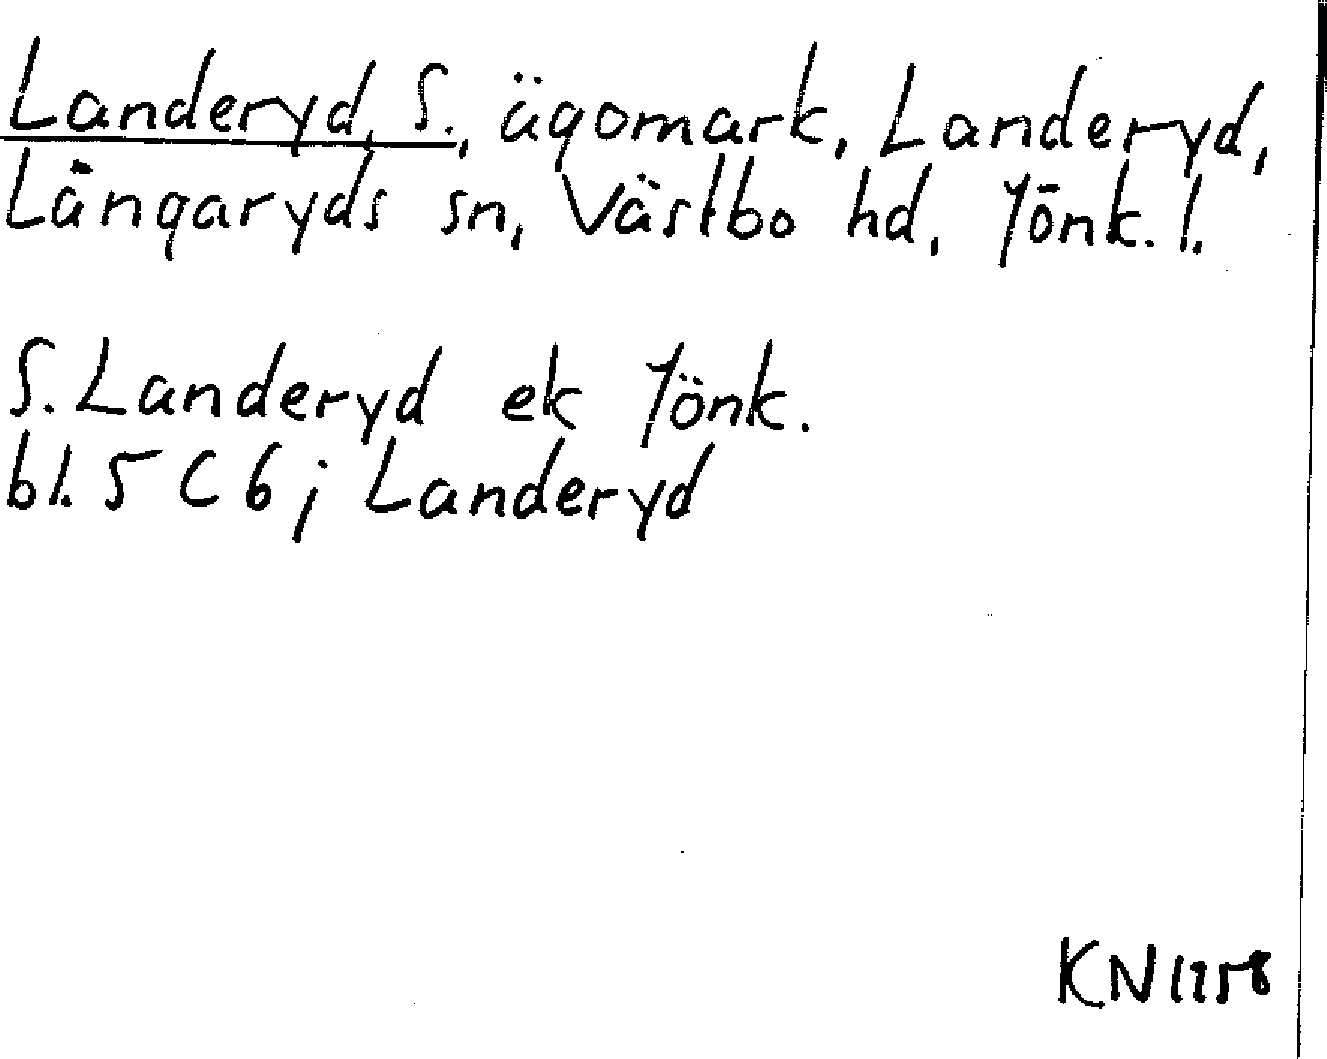 Landeryd, S., ägomark, Landeryd,
Långaryds sn, Västbo hd, Jönk. l.
S. Landeryd ek Jönk.
bl. 5 C 6; Landeryd
KN 1958